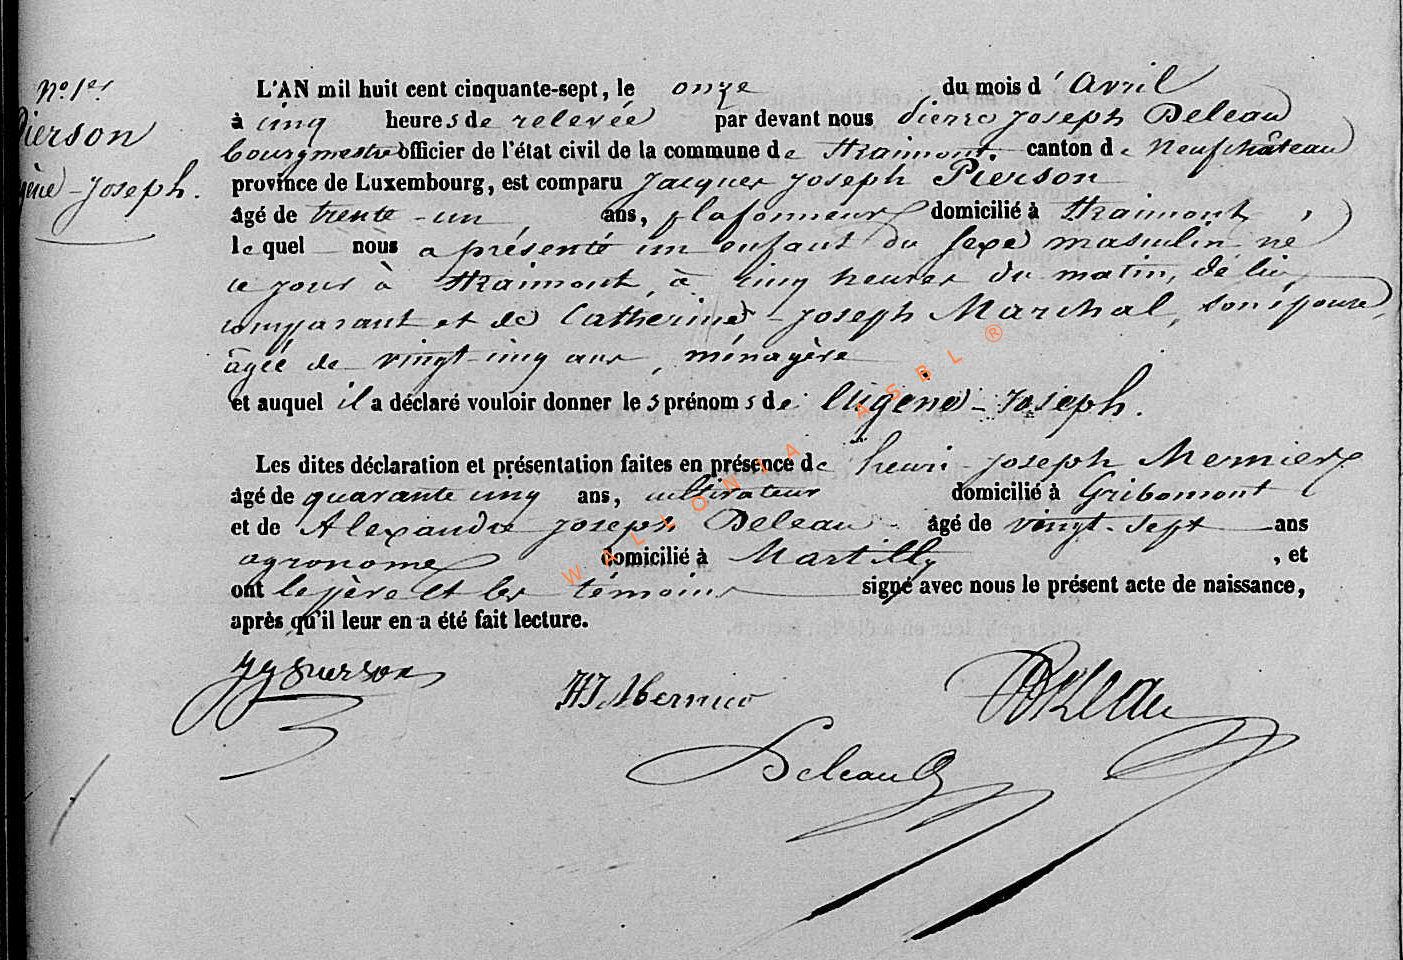 N.° 1er
Pierson
gène-Joseph.
L'AN mil huit cent cinquante-sept, le onze du mois d'Avril
à cinq heures de relevée par devant nous Pierre Joseph Deleau
bourgmestre officier de l'état civil de la commune de Straimont. canton de Neufchâteau
province de Luxembourg, est comparu Jacques Joseph Pierson
âgé de trente-un ans, plafonneur domicilié à Straimont,
lequel nous a présenté un enfant du sexe masculin né
ce jour à Straimont, à cinq heures du matin, dé lui
comparant et de Catherine-Joseph Marchal, son épouse,
âgée de vingt-cinq ans, ménagère
et auquel il a déclaré vouloir donner les prénoms de Eugène-Joseph.
Les dites déclaration et présentation faites en présence de henri-Joseph Mernier
âgé de quarante cinq ans, cultivateur domicilié à Gribomont
et de Alexandre Joseph Deleau âgé de vingt-sept ans
agronome domicilié à Martilly, et
ont le père et les témoins signé avec nous le présent acte de naissance,
après qu'il leur en a été fait lecture.
JJ Pierson
HJ Mernier
Deleau
Deleau
WALLONIA ASBL ®